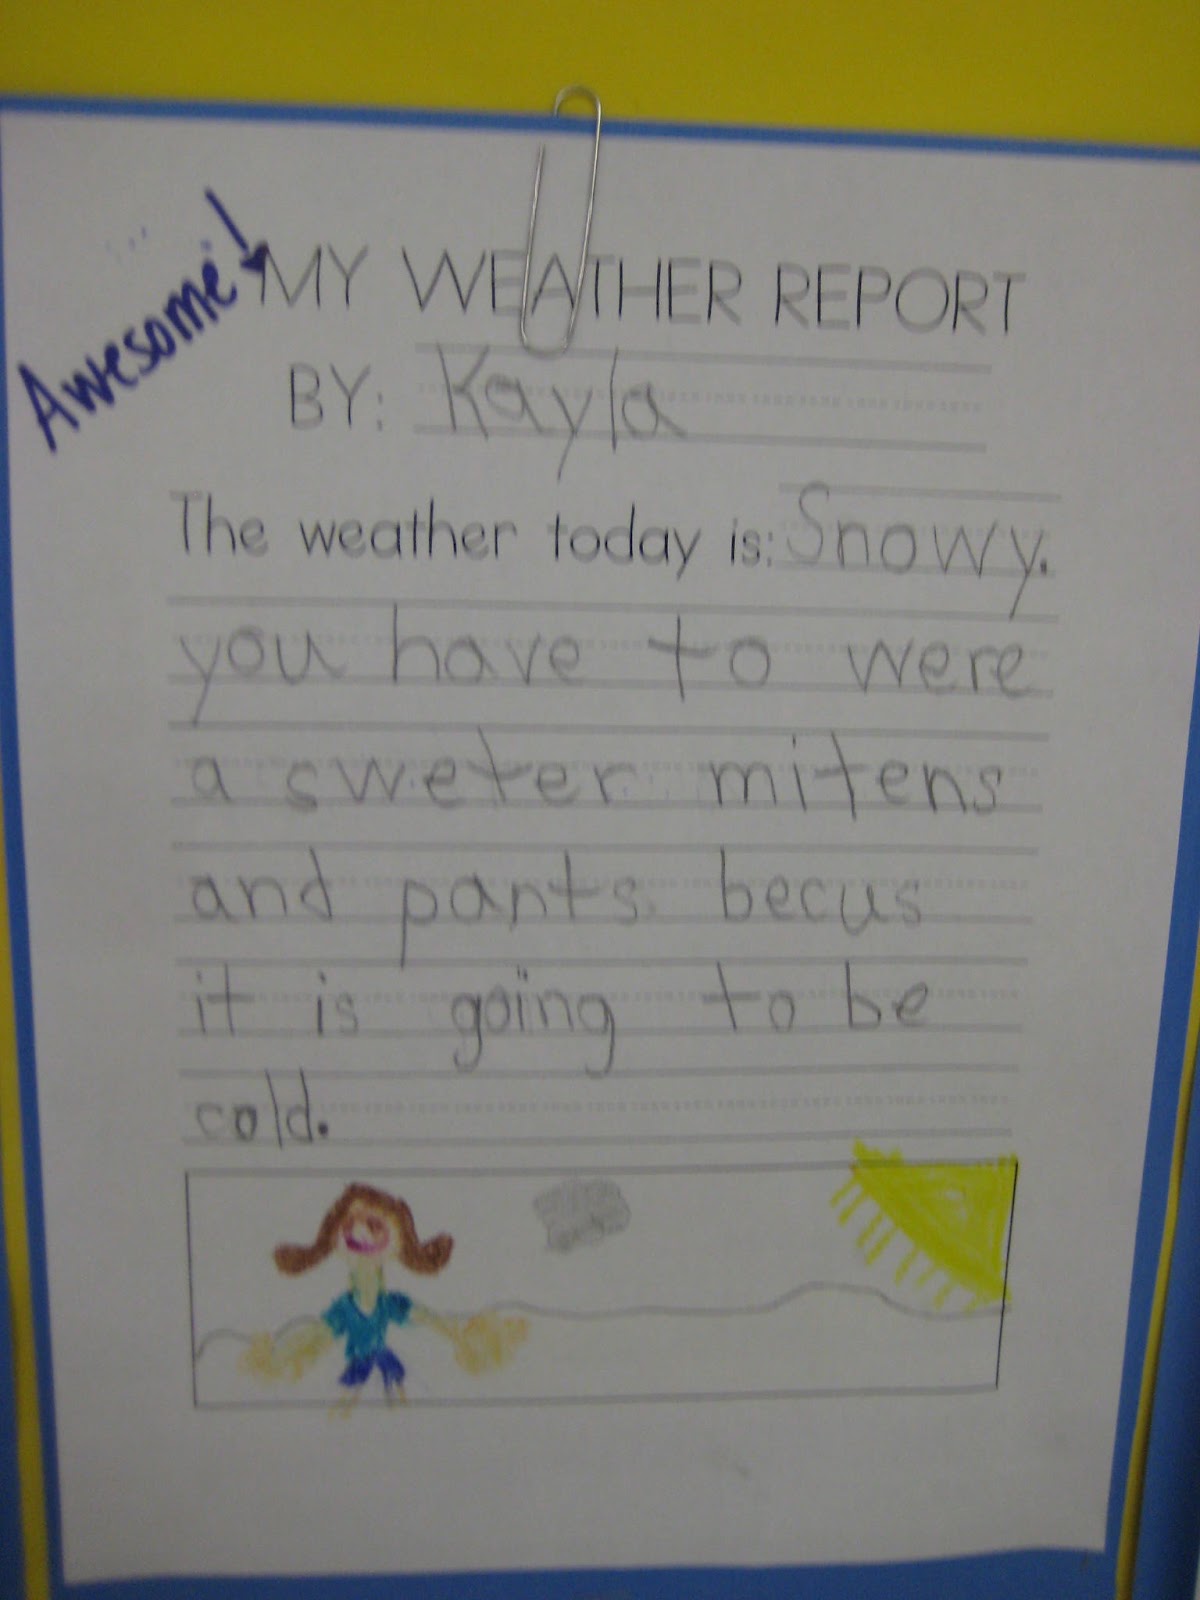 Awesome!
MY WEATHER REPORT
BY: Kayla
The weather today is: Snowy.
you have to were
a sweter mitens
and pants. becus
it is going to be
cold.